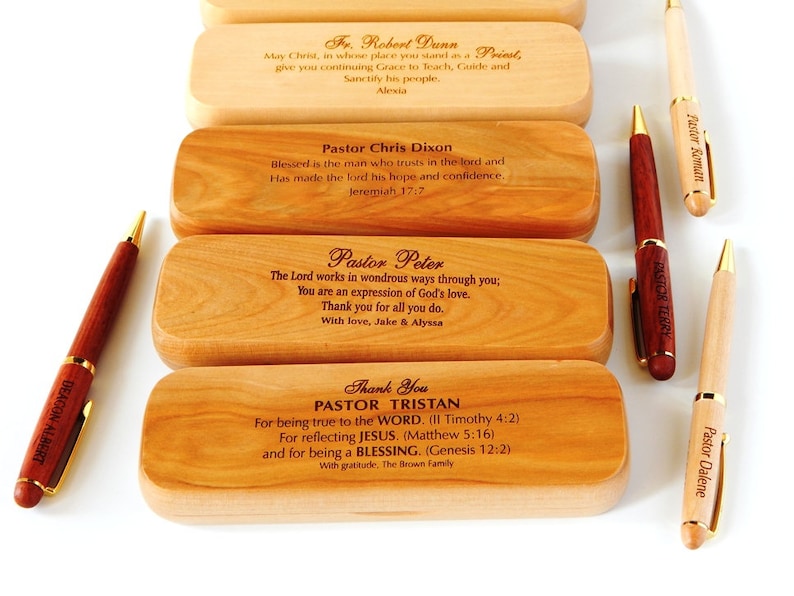 Fr. Robert Dunn
May Christ, in whose place you stand as a Priest,
give you continuing Grace to Teach, Guide and
Sanctify his people.
Alexia
Pastor Chris Dixon
Blessed is the man who trusts in the lord and
Has made the lord his hope and confidence.
Jeremiah 17:7
Pastor Peter
The Lord works in wondrous ways through you;
You are an expression of God's love.
Thank you for all you do.
With love, Jake & Alyssa
Thank You
PASTOR TRISTAN
For being true to the WORD. (II Timothy 4:2)
For reflecting JESUS. (Matthew 5:16)
and for being a BLESSING. (Genesis 12:2)
With gratitude, The Brown Family
DEACON ALBERT
Pastor Roman
PASTOR TERRY
Pastor Dalene